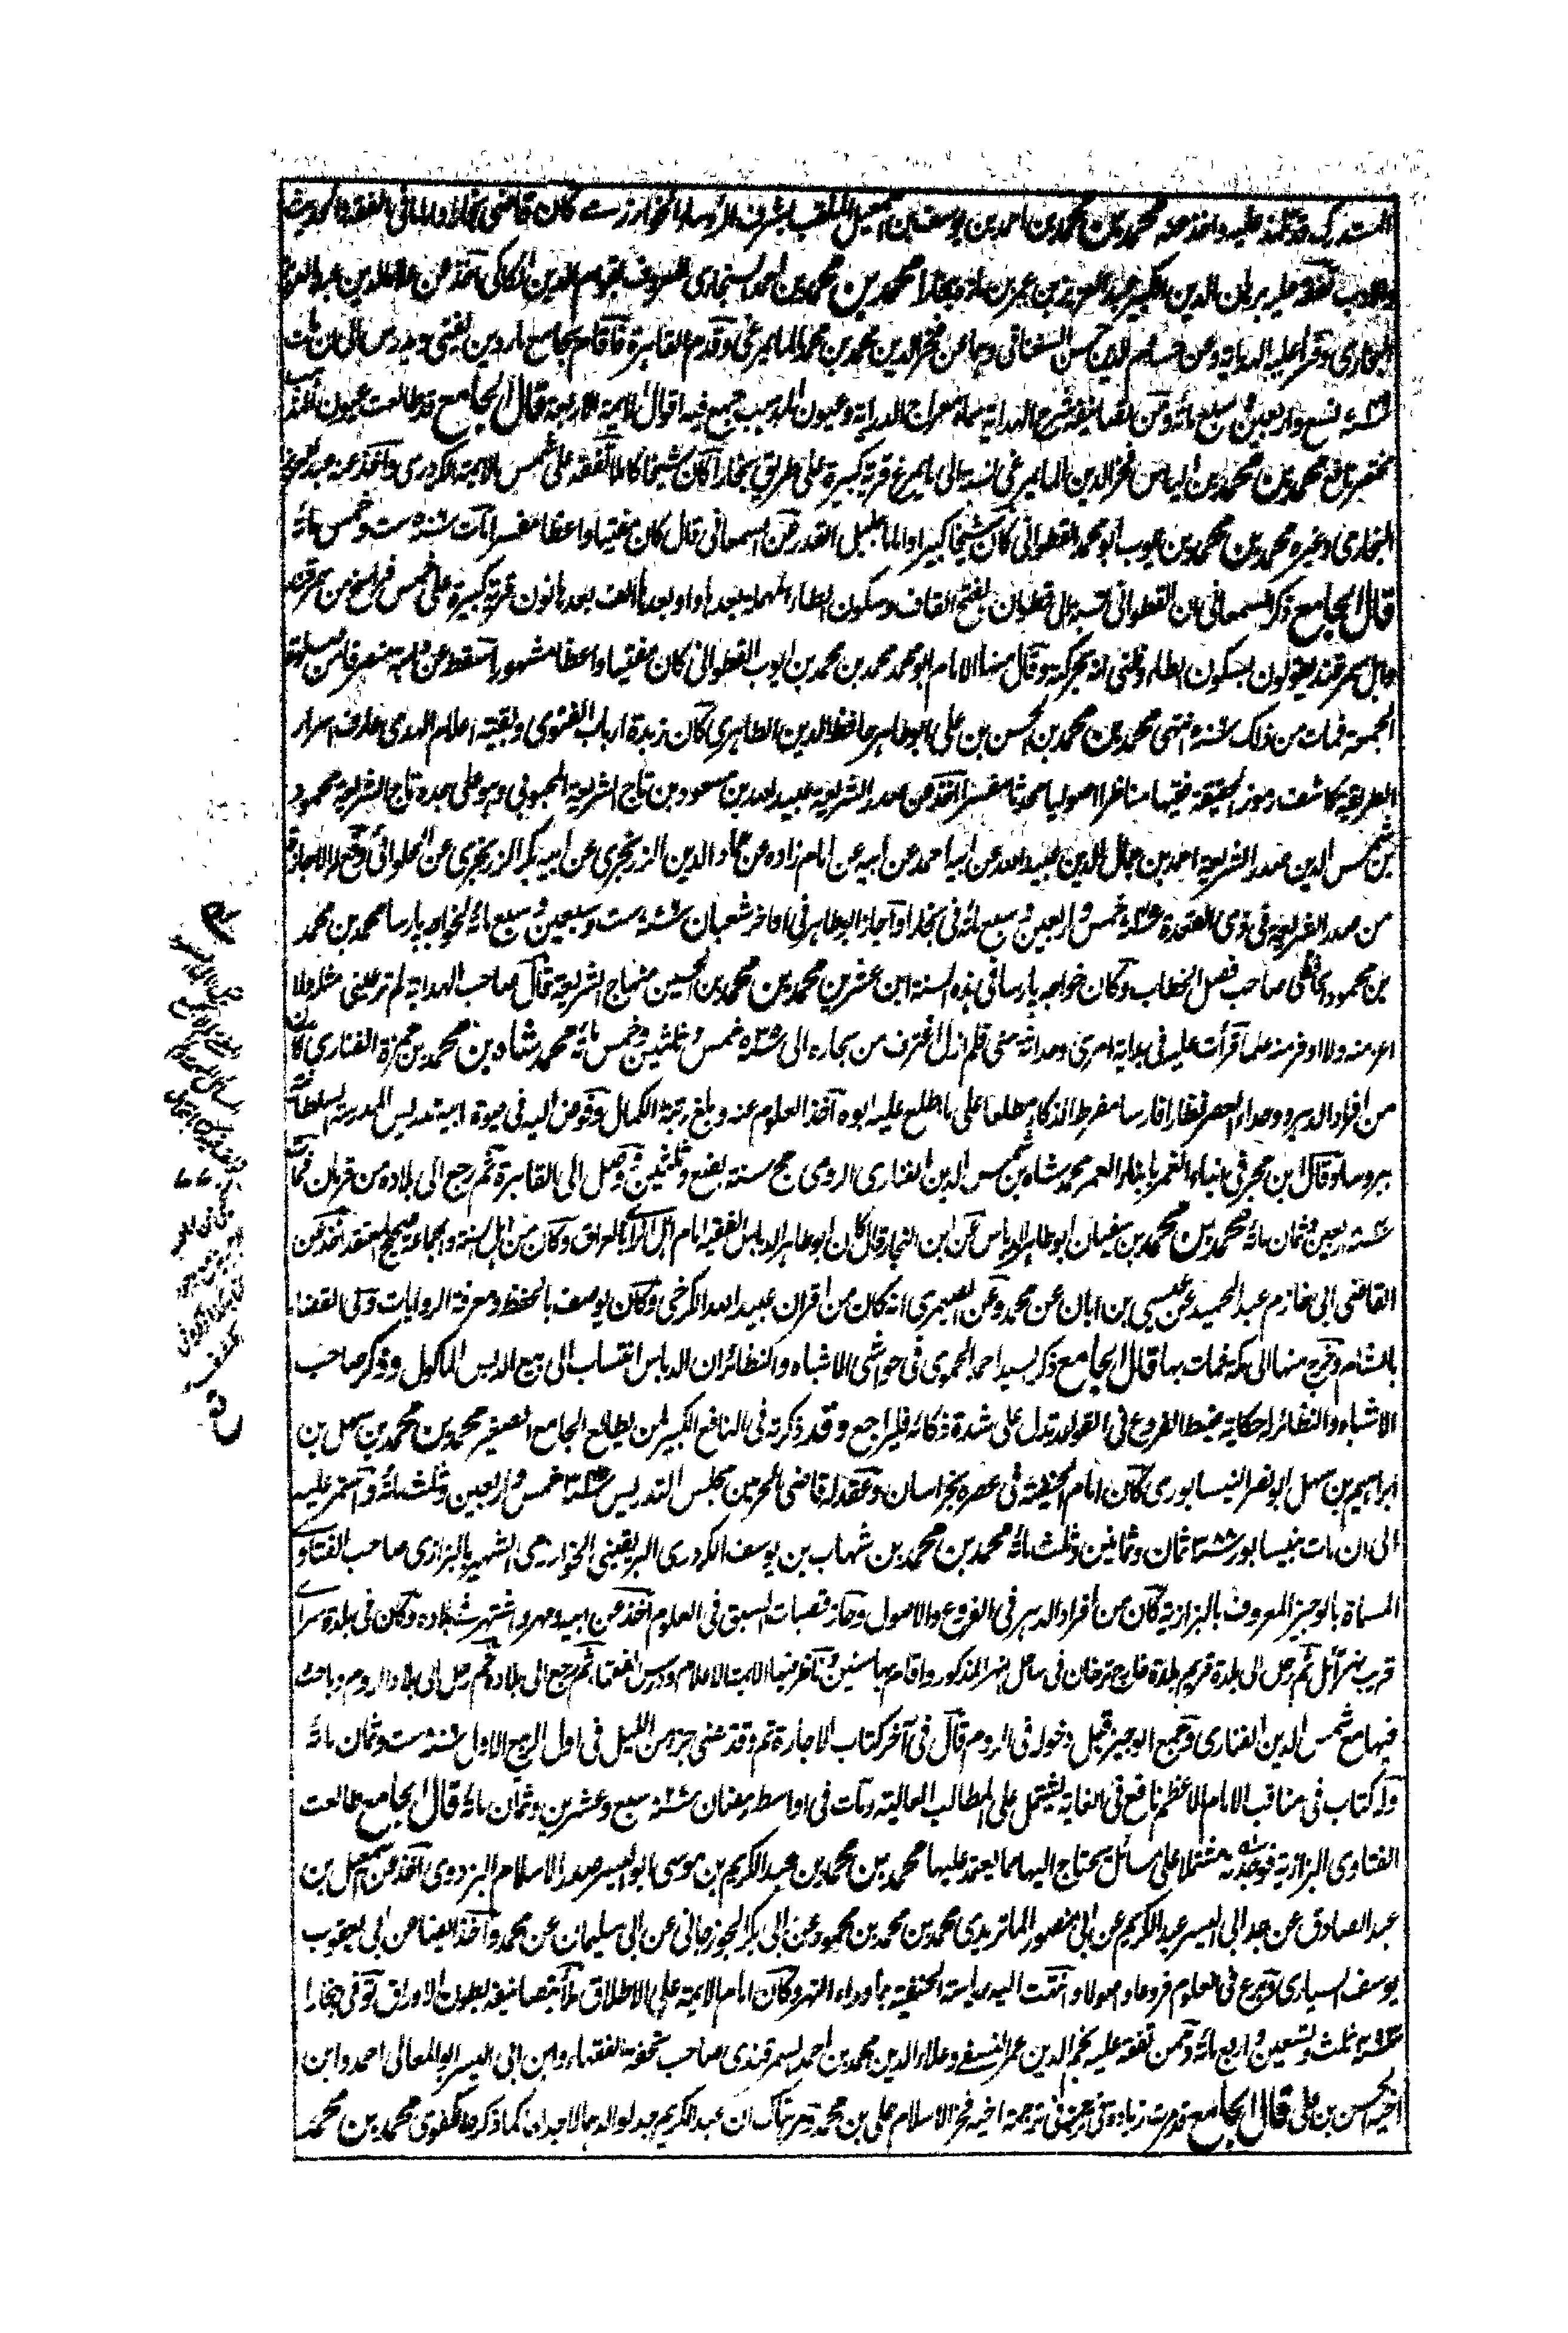 المستدرك قد تلمذ عليه واخذ عنه محمد بن محمد بن احمد بن يوسف بن اسمعيل الملقب بشرف الرؤساء الخوارزمى كان قاضى بخارا واماما فى الفقه والحديث
والادب تفقه عليه برهان الدين الكبير عبد العزيز بن عمر بن مازه ببخارا محمد بن محمد بن احمد السنجارى المعروف بقوام الدين الكاكى اخذ عن علاء الدين عبد العزيز
البخارى وقرأ عليه الهداية وعن حسام الدين حسن السغناقى وهما عن فخر الدين محمد بن محمد المايمرغى وقدم القاهرة فاقام بجامع ماردين يفتى ويدرس الى ان مات
سنة ٧٤٩ تسع واربعين وسبع مائة ومن تصانيفه شرح الهداية سماه معراج الدراية وعيون المذهب جمع فيه اقوال الايمة الاربعة قال الجامع قد طالعت عيون المذهب
مختصر نافع محمد بن محمد بن الياس فخر الدين المايمرغى نسبة الى مايمرغ قرية كبيرة على طريق بخارا كان شيخا كاملا تفقه على شمس الايمة الكردرى واخذ عنه عبد العزيز
البخارى وغيره محمد بن محمد بن ايوب ابو محمد القطوانى كان شيخا كبيرا واماما جليل القدر عن السمعانى قال كان مفتيا واعظا مفسرا مات سنة ٥٠٦ ست وخمس مائة
قال الجامع ذكر السمعانى ان القطوانى نسبة الى قطوان بفتح القاف وسكون الطاء المهملة بعدها واو بعدها الف بعدها نون قرية كبيرة على خمس فراسخ من سمرقند
واهل سمرقند يقولون بسكون الطاء وظنى انه بحركة وقال منها الامام ابو محمد محمد بن محمد بن ايوب القطوانى كان مفتيا واعظا مشهورا سقط عن دابته منصرفا من صلوة
الجمعة فمات من ذلك سنة ٥٠٦ انتهى محمد بن محمد بن الحسن بن على ابو طاهر حافظ الدين الطاهرى كان زبدة ارباب الفتوى وبقية اعلام الهدى عارف اسرار
الطريقة كاشف رموز الحقيقة فقيها مناظرا اصوليا محدثا مفسرا اخذ عن صدر الشريعة عبيد الله بن مسعود بن تاج الشريعة المحبوبى وهو على جده تاج الشريعة محمود
بن شمس الدين صدر الشريعة احمد بن جمال الدين عبيد الله عن ابيه احمد عن ابيه عن امام زاده عن عماد الدين الزرنجرى عن ابيه بكر الزرنجرى عن الحلوائى ووقع له الاجازة
من صدر الشريعة فى ذى القعدة سنة ٧٤٥ خمس واربعين وسبع مائة فى بخارا واجاز ابو طاهر فى اواخر شعبان سنة ٧٧٦ ست وسبعين وسبع مائة لخواجه پارسا محمد بن محمد
بن محمود الحافظى صاحب فصل الخطاب وكان خواجه پارسا فى هذه السنة ابن عشرين محمد بن محمد بن الحسين منهاج الشريعة قال صاحب الهداية لم تر عينى مثله ولا
اعز منه ولا اوفر منه علما قرأت عليه فى بداية امرى وحداثة سنى فلم ازل اغترف من بحاره الى سنة ٥٣٥ خمس وثلثين وخمس مائة محمد شاه بن محمد بن حمزة الفنارى كان
من افراد الدهر ووحداء العصر نظارا فارسا مفرط الذكاء مطلعا على ما اطلع عليه ابوه اخذ العلوم عنه وبلغ رتبة الكمال وفوض اليه فى حيوة ابيه تدريس المدرسة السلطانية
ببروسا وقال ابن حجر فى انباء الغمر بابناء العمر محمد شاه بن شمس الدين الفنارى الرومى حج سنة بضع وثلثين ووصل الى القاهرة ثم رجع الى بلاده من قرمان فمات
سنة ٨٤٠ اربعين وثمان مائة محمد بن محمد بن سفيان ابو طاهر الدباس عن ابن النجار قال كان ابو طاهر الدباس الفقيه امام اهل الراى بالعراق وكان من اهل السنة والجماعة صحيح المعتقد اخذ عن
القاضى ابى خازم عبد الحميد عن عيسى بن ابان عن محمد وعن الصيمرى انه كان من اقران عبيد الله الكرخى وكان يوصف بالحفظ ومعرفة الروايات وولى القضاء
بالشام وخرج منها الى مكة فمات بها قال الجامع ذكر السيد احمد الحموى فى حواشى الاشباه والنظائر ان الدباس انتساب الى بيع الدبس الماكول وذكر صاحب
الاشباه والنظائر له حكاية ضبط الفروع فى القواعد تدل على شدة ذكائه فليراجع وقد ذكرته فى النافع الكبير لمن يطالع الجامع الصغير محمد بن محمد بن سهل بن
ابراهيم بن سهل ابو نصر النيسابورى كان امام الحنفية فى عصره بخراسان وعقد له قاضى الحرمين مجلس التدريس سنة ٣٤٥ خمس واربعين وثلث مائة واستمر عليه
الى ان مات بنيسابور سنة ٣٨٨ ثمان وثمانين وثلث مائة محمد بن محمد بن شهاب بن يوسف الكردرى البريقينى الخوارزمى الشهير بالبزازى صاحب الفتاوى
المسماة بالوجيز المعروف بالبزازية كان من افراد الدهر فى الفروع والاصول وحاز قصبات السبق فى العلوم اخذ عن ابيه ومهر واشتهر فى بلاده وكان فى بلدة سراى
قريب نهر آتل ثم رحل الى بلدة قريم بلدة حاج ترخان فى ساحل النهر المذكور واقام بها سنين وناظر فيها الايمة الاعلام ودرس الفقهاء ثم رجع الى بلاده ثم رحل الى بلاد الروم وباحث
فيها مع شمس الدين الفنارى وجمع الوجيز قبل دخوله فى الروم قال فى آخر كتاب الاجارة تم وقد مضى جزء من الليل فى اول الربيع الاول سنة ست وثمان مائة
وله كتاب فى مناقب الامام الاعظم نافع فى الغاية يشتمل على المطالب العالية ومات فى اواسط رمضان سنة ٨٢٧ سبع وعشرين وثمان مائة قال الجامع طالعت
الفتاوى البزازية فوجدته مشتملا على مسائل يحتاج اليها مما يعتمد عليها محمد بن محمد بن عبد الكريم بن موسى ابو اليسر صدر الاسلام البزدوى اخذ عن اسمعيل بن
عبد الصادق عن جد ابى اليسر عبد الكريم عن ابى منصور الماتريدى محمد بن محمد بن محمود عن ابى بكر الجوزجانى عن ابى سليمان عن محمد واخذ ايضا عن ابى يعقوب
يوسف السيارى وبرع فى العلوم فروعا واصولا وانتهت اليه رياسة الحنفية بماوراء النهر وكان امام الايمة على الاطلاق ملأ بتصانيفه بطون الاوراق توفى ببخارا
سنة ٤٩٣ ثلث وتسعين واربع مائة وممن تفقه عليه نجم الدين عمر النسفى وعلاء الدين محمد بن احمد السمرقندى صاحب تحفة الفقهاء وابن ابى اليسر ابو المعالى احمد وابن
اخيه الحسن بن على قال الجامع قد مرت زيادة فى ترجمته فى ترجمة اخيه فخر الاسلام على بن محمد ومر هناك ان عبد الكريم جد لوالدهما لا جد لهما كما ذكره الكفوى محمد بن محمد